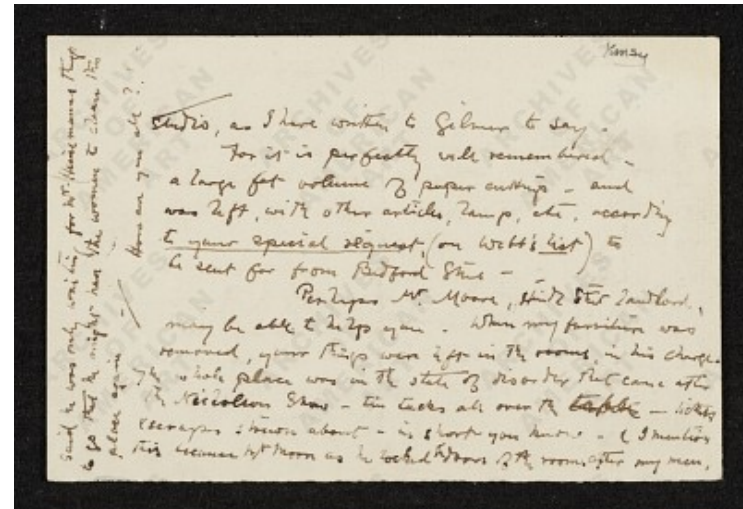 studio, as I have written to Gilmer to say.
For it is perfectly well remembered -
a large fat volume of paper cuttings - and
was left, with other articles, lamp, etc, according
to your special request (on Webb's list) to
be sent for from Bedford Street -
Perhaps Mr. Moore, Hind Street landlord,
may be able to help you. When my furniture was
removed, your things were left in the rooms, in his charge.
The whole place was in the state of disorder that came after
the Nicholson Show - tin tacks all over the table -
strewn about - in short you know - (I mention
this because Mr Moore as he locked the doors of the rooms after my men,
said he was only waiting for Mr. Heinemann's things
to go that he might have the women to clean the
place again -) How are you all?